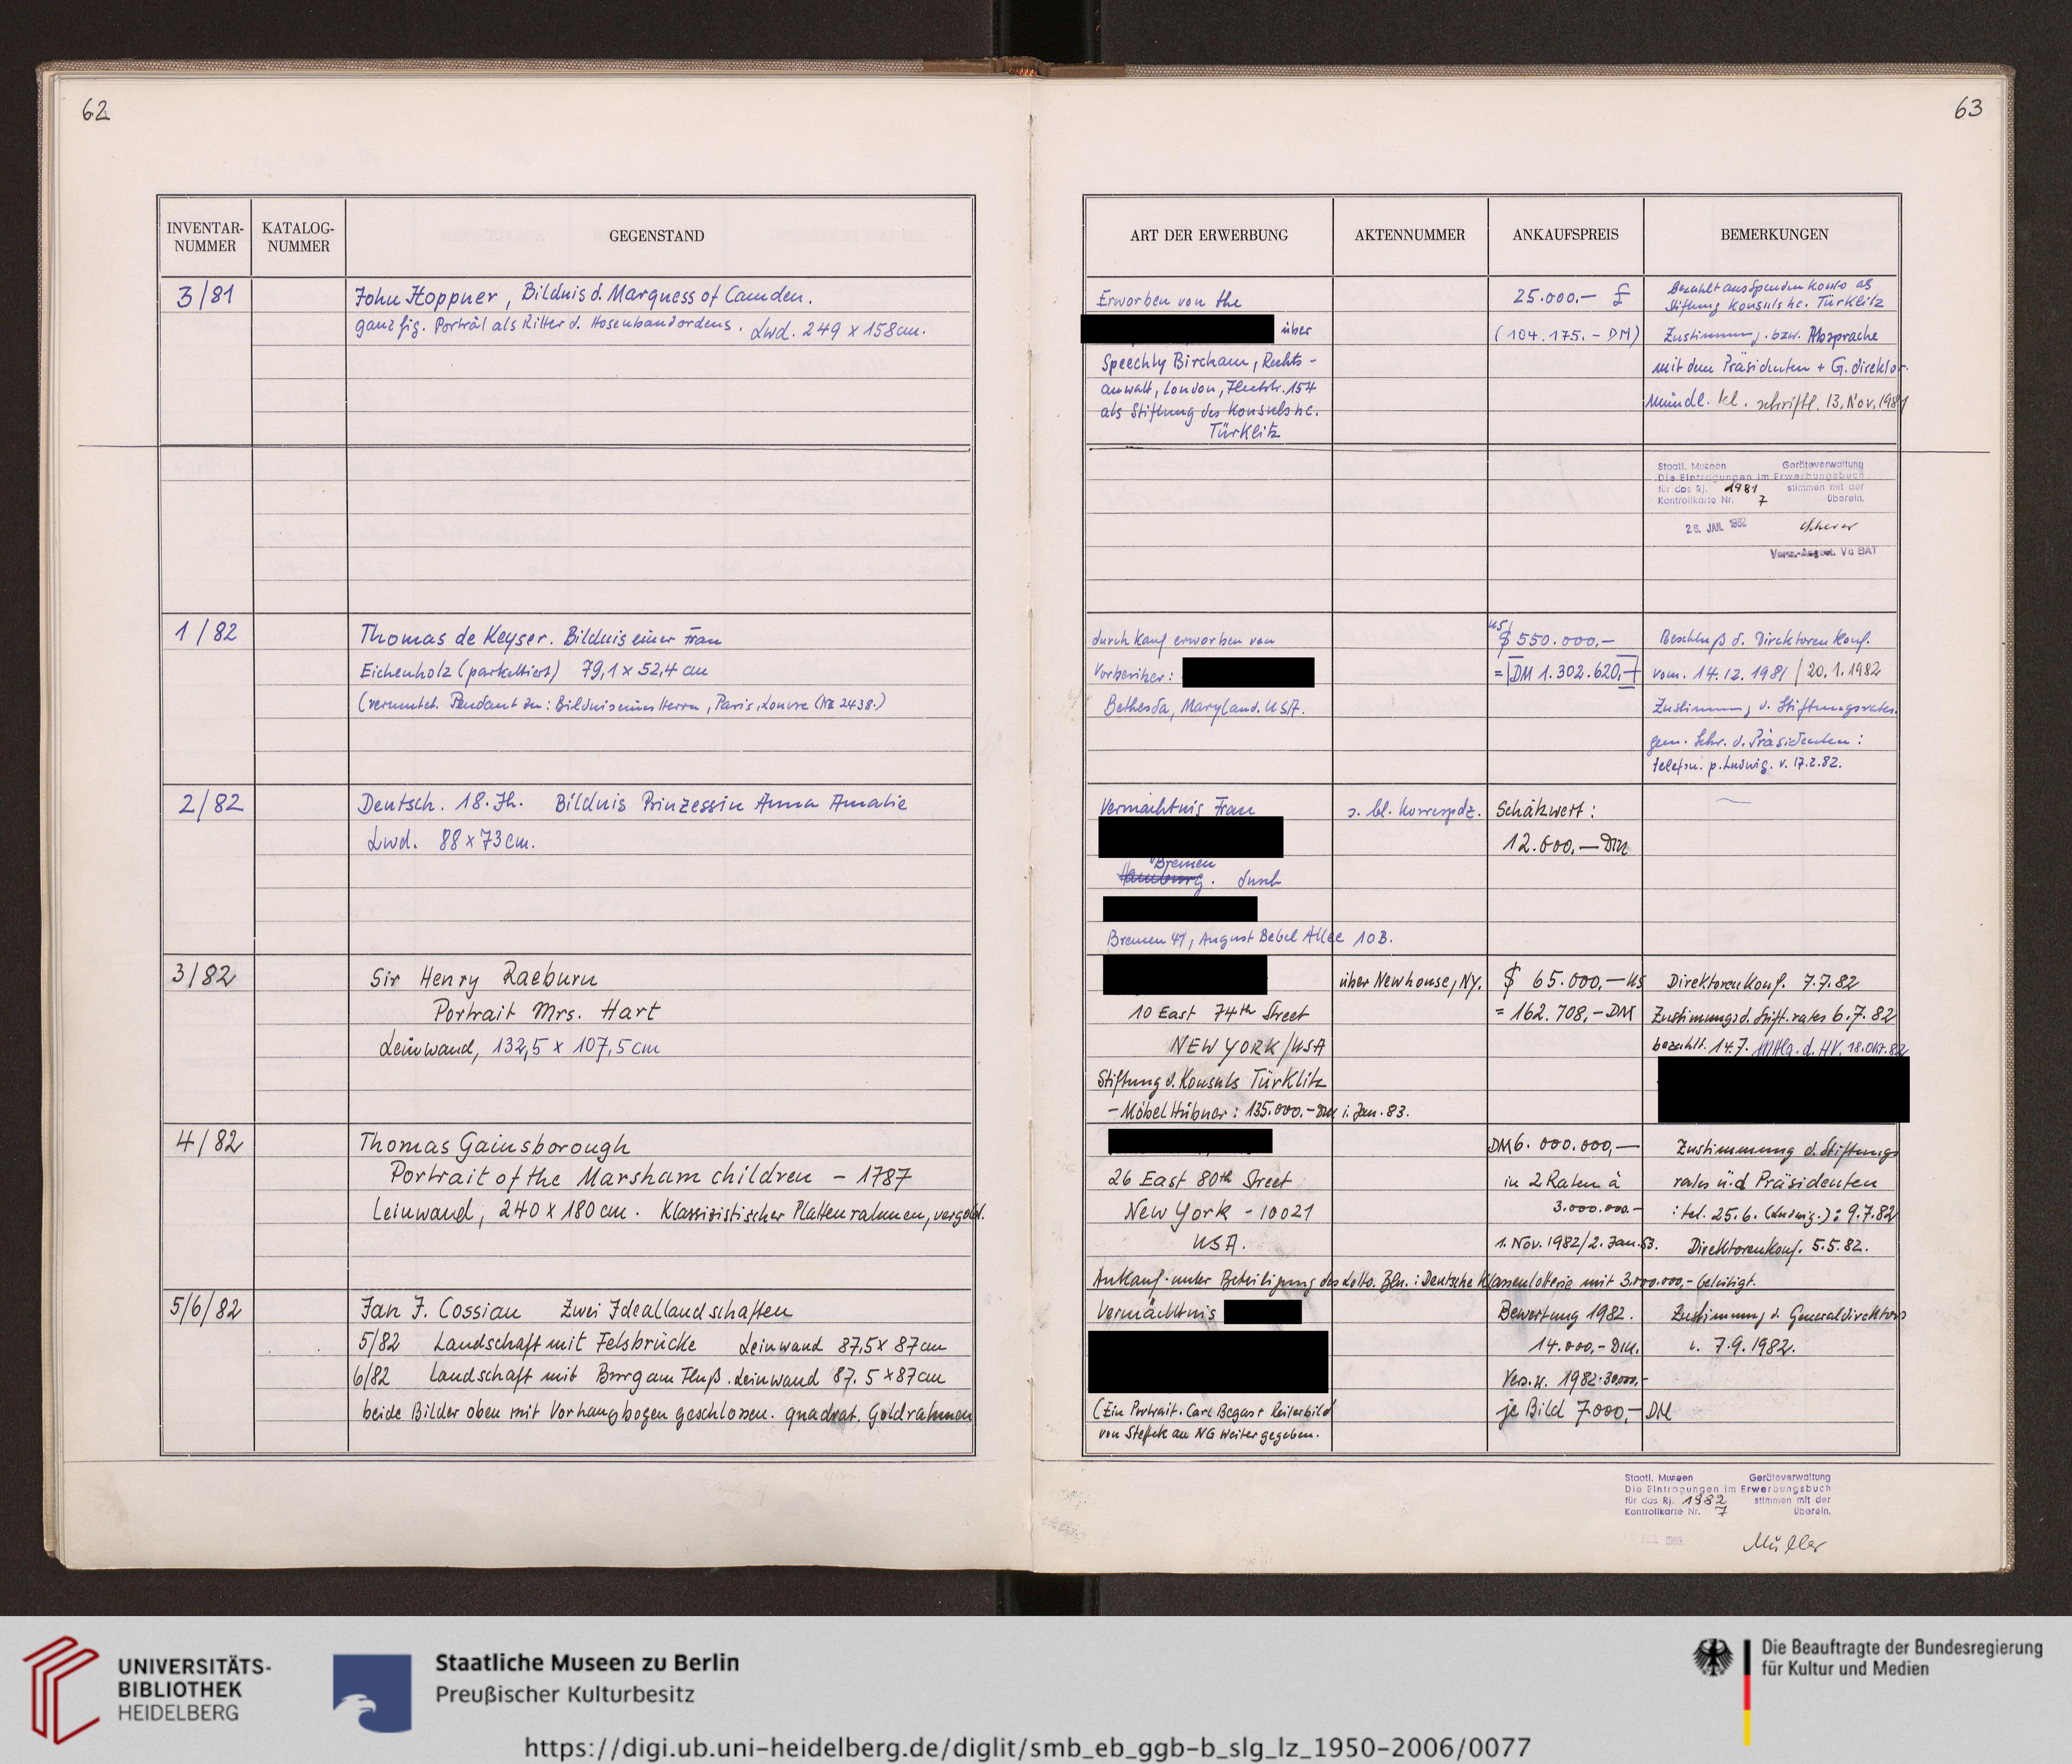 62
63
INVENTAR-
NUMMER
KATALOG-
NUMMER
GEGENSTAND
3/81
John Hoppner, Bildnis d. Marquess of Camden.
ganzfig. Porträt als Ritter d. Hosenbandordens. Lwd. 249 x 158 cm.
1/82
Thomas de Keyser. Bildnis einer Frau
Eichenholz (parkettiert) 79,1 x 52,4 cm
(vermutch. Pendant zu: Bildnis eines Herrn, Paris, Louvre (Nr. 2438.)
2/82
Deutsch. 18. Jh. Bildnis Prinzessin Anna Amalie
Lwd. 88 x 73 cm.
3/82
Sir Henry Raeburn
Portrait Mrs. Hart
Leinwand, 132,5 x 107,5 cm
4/82
Thomas Gainsborough
Portrait of the Marsham children - 1787
Leinwand, 240 x 180 cm. Klassizistischer Plattenrahmen, vergold.
5/6/82
Jan F. Cossiau Zwei Ideallandschaften
5/82 Landschaft mit Felsbrücke Leinwand 87,5 x 87 cm
6/82 Landschaft mit Burg am Fluß. Leinwand 87.5 x 87 cm
beide Bilder oben mit Vorhangbogen geschlossen. quadrat. Goldrahmen
ART DER ERWERBUNG
AKTENNUMMER
ANKAUFSPREIS
BEMERKUNGEN
Erworben von the
über
Speechly Bircham, Rechts-
anwalt, London, Fleetstr. 154
als Stiftung des Konsuls hc.
Türklitz
25.000.- £
(104.175.- DM)
Bezahlt aus Spendenkonto als
Stiftung Konsuls hc. Türklitz
Zustimmung. bzw. Absprache
mit dem Präsidenten + G.direktor.
mündl. schriftl. 13. Nov. 1981
Staatl. Museen Geräteverwaltung
Die Eintragungen im Erwerbungsbuch
für das Rj. 1981 stimmen mit der
Kontrollkarte Nr. 7 überein.
26. JAN. 1982
durch Kauf erworben von
Vorbesitzer:
Bethesda, Maryland. USA.
US $ 550.000,-
= DM 1.302.620,-
Beschluß d. Direktoren Konf.
vom. 14.12.1981 / 20.1.1982
Zustimmung d. Stiftungsrates.
gem. Schr. d. Präsidenten:
telefon. p. Ludwig. v. 17.2.82.
Vermächtnis Frau
Bremen
Hamburg. durch
Bremen 41, August Bebel Allee 10 B.
s. bl. Korrespdz.
Schätzwert:
12.000,- DM
10 East 74th Street
NEW YORK/USA
Stiftung d. Konsuls Türklitz
- Möbel Hübner: 135.000.- DM i. Jan. 83.
über Newhouse, NY.
$ 65.000,- US
= 162.708,- DM
Direktoren Konf. 7.7.82
Zustimmung d. Stift.rates 6.7.82
bezahlt. 14.7. Mttlg. d. HV. 18.Okt.82
26 East 80th Street
New York - 10021
USA.
DM 6.000.000,-
in 2 Raten à
3.000.000.-
1. Nov. 1982/2. Jan. 83.
Zustimmung d. Stiftungs
rates u. d Präsidenten
: tel. 25.6. (Ludwig.): 9.7.82
Direktorenkonf. 5.5.82.
Ankauf unter Beteiligung des Lotto. Bln.: Deutsche Klassenlotterie mit 3.000.000,- beteiligt.
Vermächtnis
(Ein Portrait. Carl Begas + Reiterbild
von Steffeck an NG weitergegeben.
Bewertung 1982.
14.000,- DM.
Vers.w. 1982. 30000,-
je Bild 7.000,- DM
Zustimmung d. Generaldirektors
v. 7.9.1982.
Staatl. Museen Geräteverwaltung
Die Eintragungen im Erwerbungsbuch
für das Rj. 1982 stimmen mit der
Kontrollkarte Nr. 7 überein.
Müller
UNIVERSITÄTS-
BIBLIOTHEK
HEIDELBERG
Staatliche Museen zu Berlin
Preußischer Kulturbesitz
Die Beauftragte der Bundesregierung
für Kultur und Medien
https://digi.ub.uni-heidelberg.de/diglit/smb_eb_ggb-b_slg_lz_1950-2006/0077